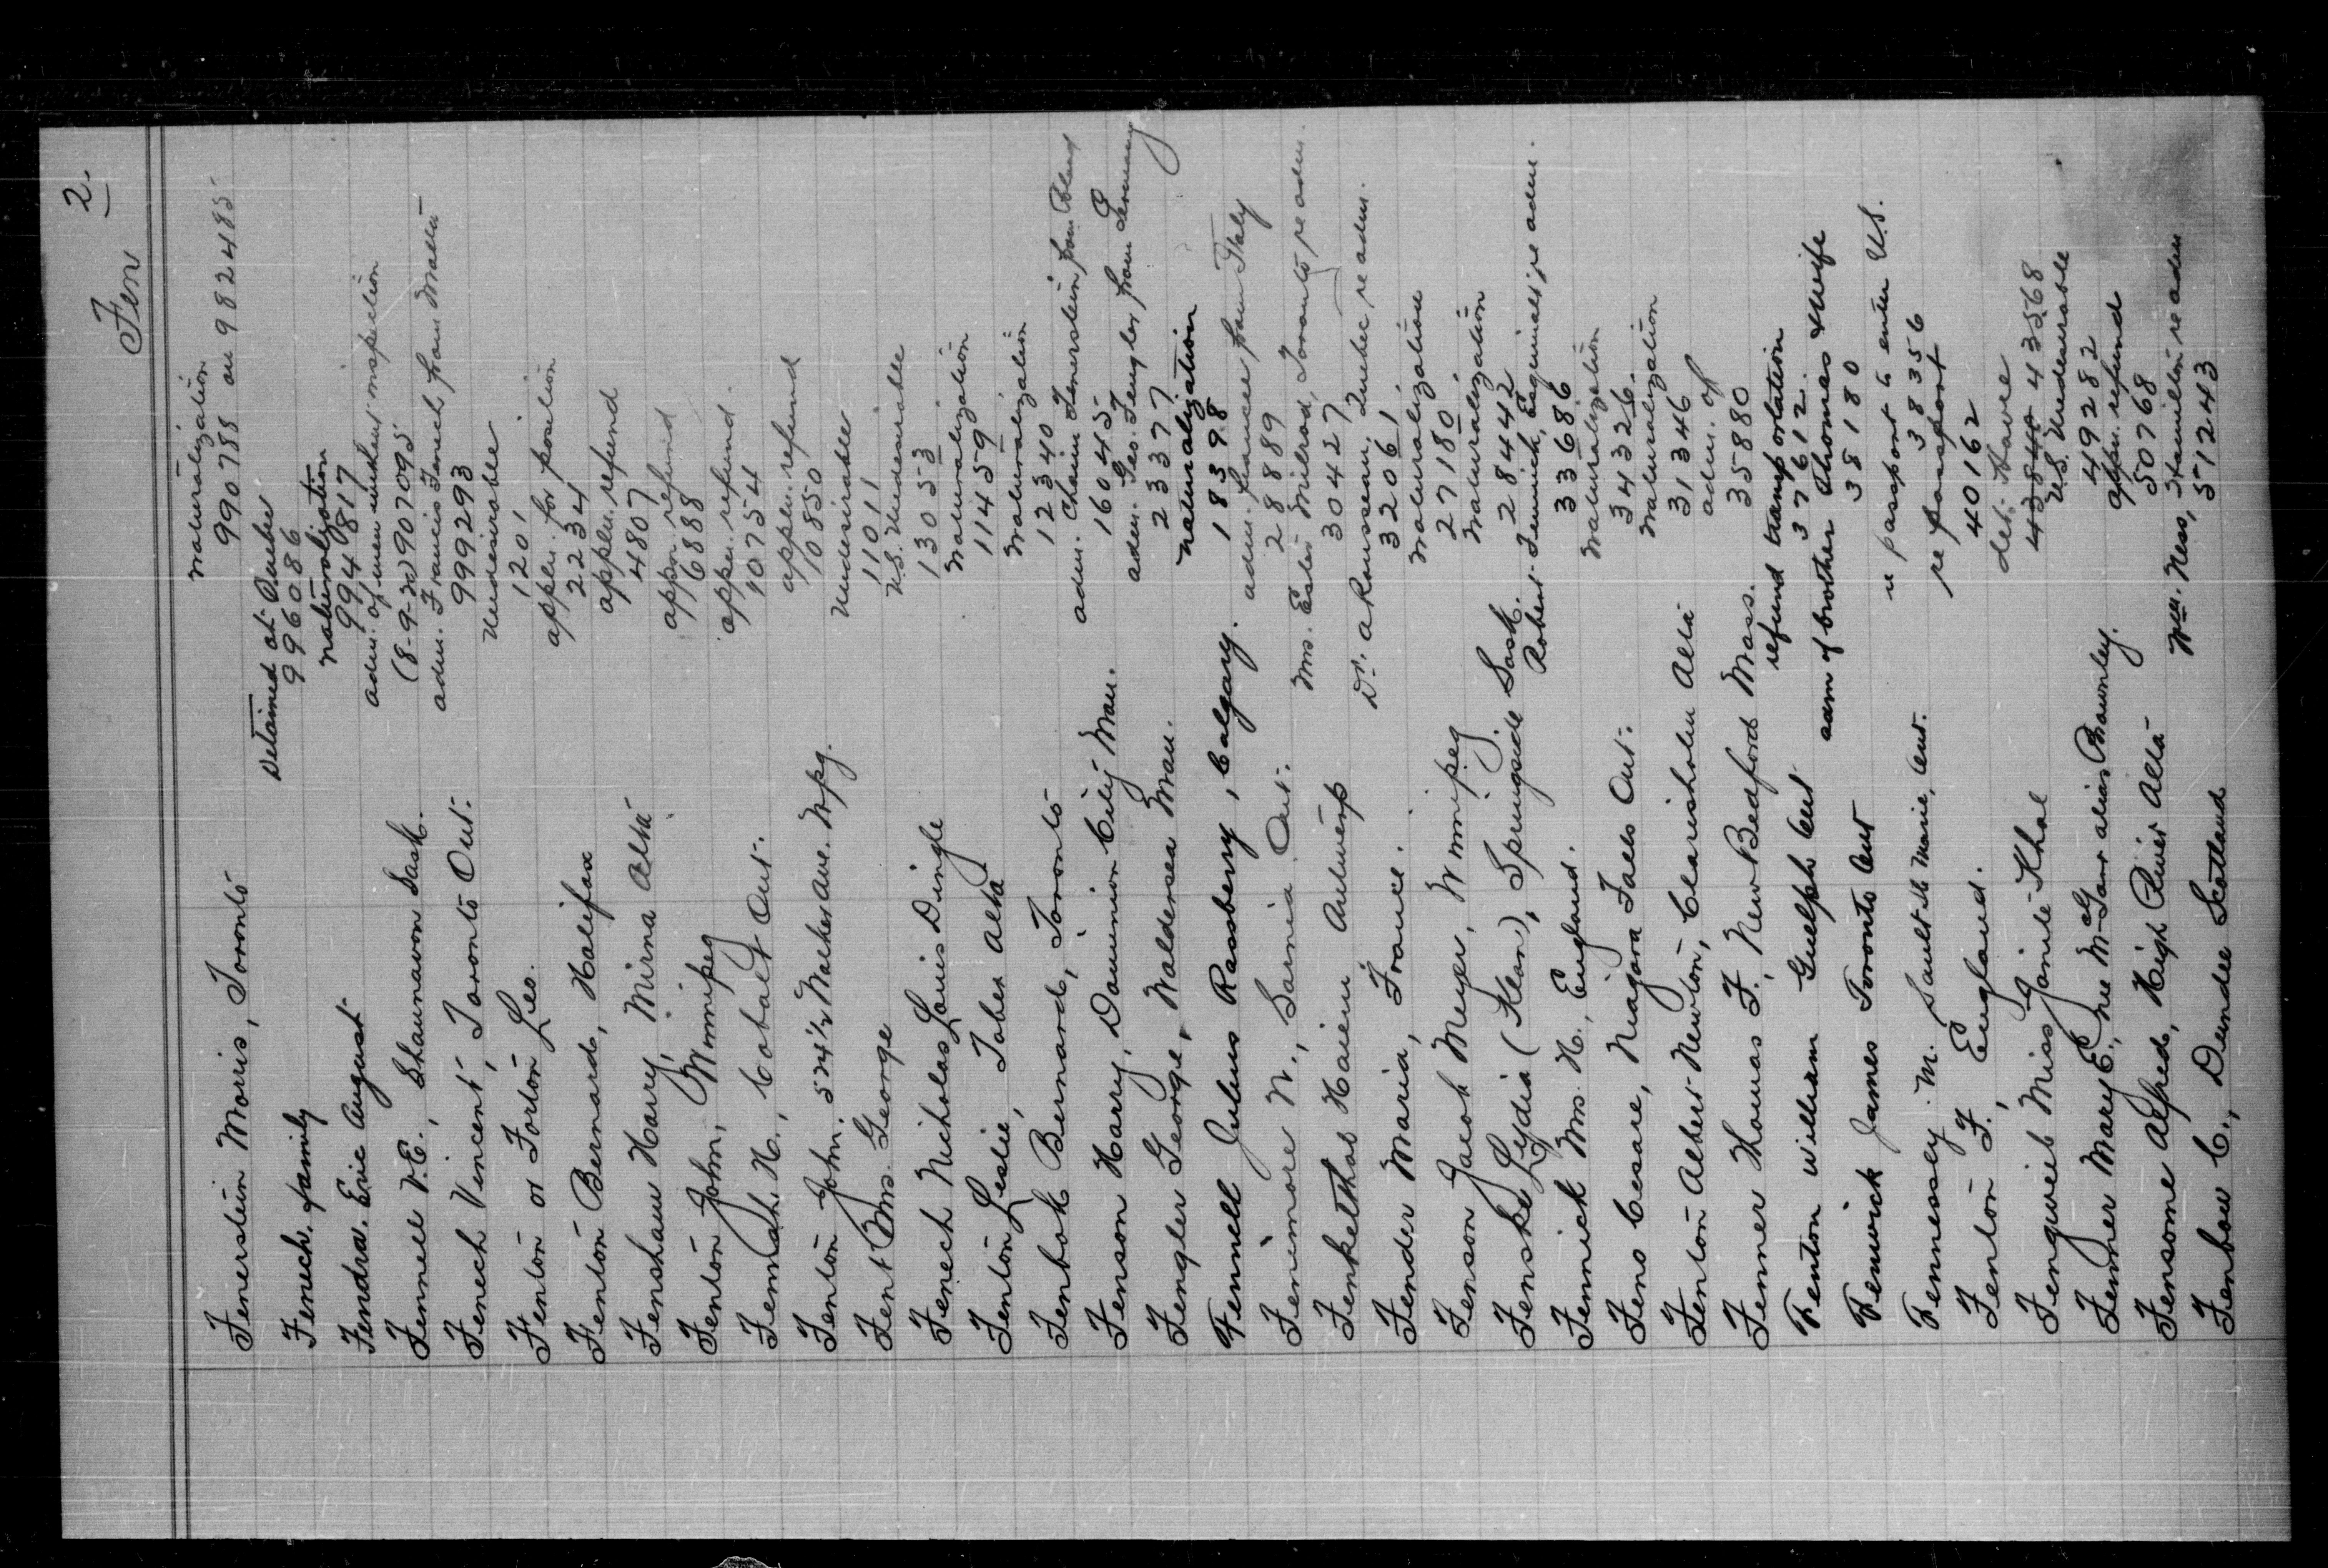 Fen 2.
Fenerstein Morris, Toronto
naturalization
990788 on 982485
Fenech, family
Detained at Quebec
996086
Fendra, Eric August
naturalization
994817
Fennell V.E., Shaunavon Sask.
adm. of men without inspection
(8-9-20) 907095
Fenech Vincent, Toronto Ont.
adm. Francis Fenech from Malta
999293
Fenton or Forton Leo.
Undesirable
1201
Fenton Bernard, Halifax
appln. for position
2234
Fenshaw Harry, Mirna Alta
appln. refund
4807
Fenton John, Winnipeg
appn. refund
6888
Fennah H., Cobalt Ont.
appn. refund
10754
Fenton John, 524½ Walker Ave. Wpg.
appln. refund
10850
Fent Mrs. George
Undesirable
11011
Fenech Nicholas Louis Dingle
U.S. Undesirable
13053
Fenton Leslie, Taber Alta
Naturalization
11459
Fenbok Bernard, Toronto
Naturalization
12340
Fenson Harry, Dominion City Man.
adm. Chaim Fenerstein from Poland
16045
Fengler George, Waldersea Man.
adm. Geo. Fengler from Germany
23377
Fennell Julius Rassberry, Calgary.
naturalization
18398
Fenimore N., Sarnia Ont.
adm. fiancee from Italy
28889
Fenkelthal Haiem Antwerp
Mrs. Ester Milrod, Toronto re adm.
30427
Fender Maria, France.
Dr. A Rousseau, Quebec re adm.
32061
Fenson Jacob Meyer, Winnipeg
Naturalization
27180
Fenske Lydia (Klean), Springside Sask.
Naturalization
28442
Fennick Mrs. H., England.
Robert Fennick, Esquimalt re adm.
33686
Feno Cesare, Niagara Falls Ont.
Naturalization
34326
Fenton Albert Newton, Claresholm Alta
Naturalization
31346
Fenner Thomas F., New Bedford Mass.
adm. of
35880
Fenton William Guelph Ont
refund transportation
37612
Fenwick James Toronto Ont
adm of brother Thomas & wife
38180
Fennessey M. Sault Ste Marie, Ont.
re passport to enter U.S.
38356
Fenton F., England.
re passport
40162
Fengweib Miss Jainte Khal
det. Havre
43840 43568
Fenner Mary E., nee McGarr alias Brownley.
U.S. Undesirable
49282
Fensome Alfred, High River Alta
appn. refund
50768
Fenbow C., Dundee Scotland
Wm. Ness, Hamilton re adm
51243